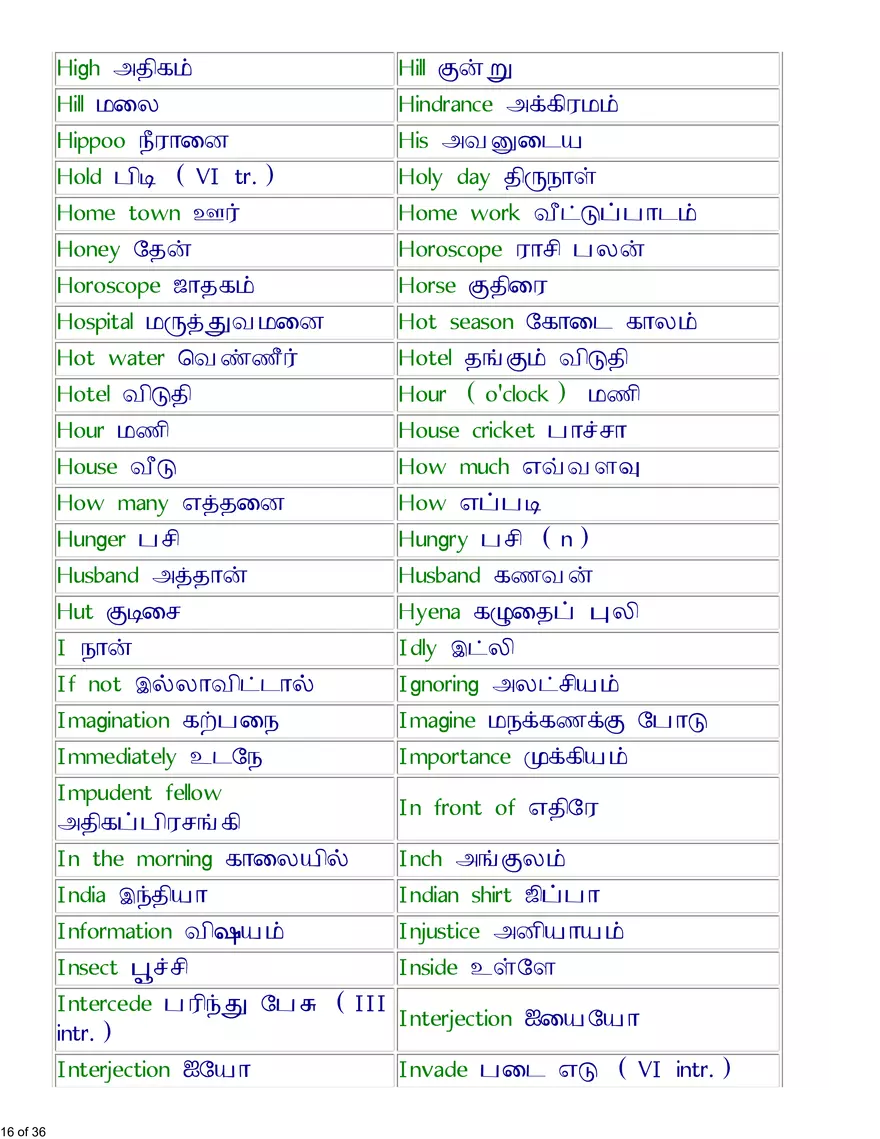 High அதிகம்
Hill குன்று
Hill மலை
Hindrance அக்கிரமம்
Hippoo நீரானை
His அவனுடைய
Hold பிடி ( VI tr. )
Holy day திருநாள்
Home town ஊர்
Home work வீட்டுப்பாடம்
Honey தேன்
Horoscope ராசி பலன்
Horoscope ஜாதகம்
Horse குதிரை
Hospital மருத்துவமனை
Hot season கோடை காலம்
Hot water வெண்ணீர்
Hotel தங்கும் விடுதி
Hotel விடுதி
Hour ( o'clock ) மணி
Hour மணி
House cricket பாச்சா
House வீடு
How much எவ்வளவு
How many எத்தனை
How எப்படி
Hunger பசி
Hungry பசி ( n )
Husband அத்தான்
Husband கணவன்
Hut குடிசை
Hyena கழுதைப் புலி
I நான்
Idly இட்லி
If not இல்லாவிட்டால்
Ignoring அலட்சியம்
Imagination கற்பநை
Imagine மநக்கணக்கு போடு
Immediately உடநே
Importance முக்கியம்
Impudent fellow
அதிகப்பிரசங்கி
In front of எதிரே
In the morning காலையில்
Inch அங்குலம்
India இந்தியா
Indian shirt ஜிப்பா
Information விஷயம்
Injustice அனியாயம்
Insect பூச்சி
Inside உள்ளே
Intercede பரிந்து பேசு ( III
intr. )
Interjection ஐயையோ
Interjection ஐயோ
Invade படை எடு ( VI intr. )
16 of 36